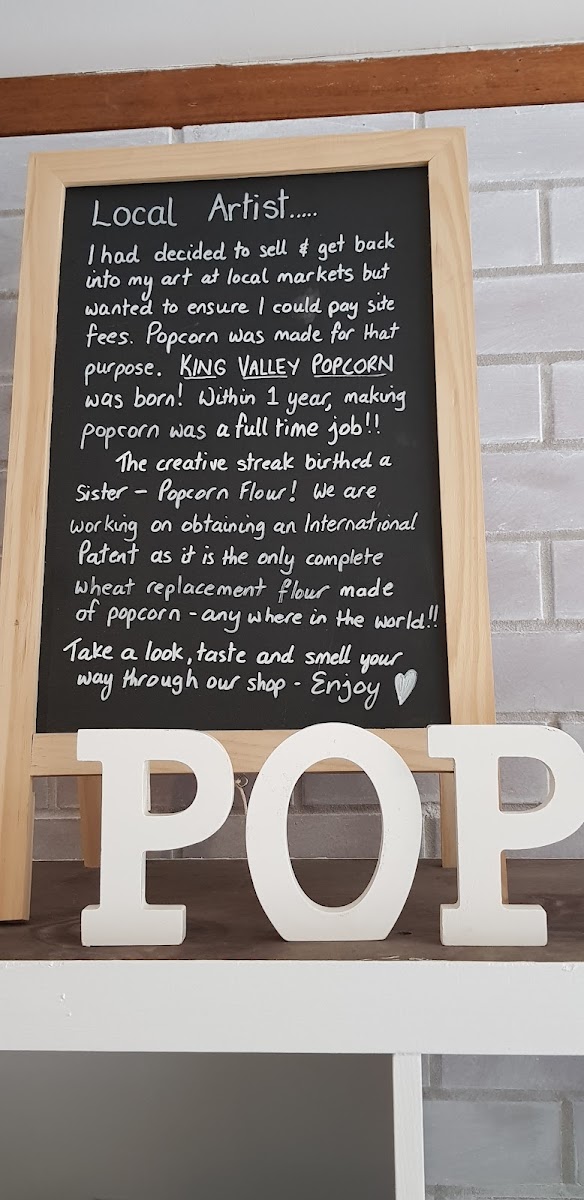 Local Artist.....
I had decided to sell & get back
into my art at local markets but
wanted to ensure I could pay site
fees. Popcorn was made for that
purpose. KING VALLEY POPCORN
was born! Within 1 year, making
popcorn was a full time job!!
The creative streak birthed a
Sister - Popcorn Flour! We are
working on obtaining an International
Patent as it is the only complete
wheat replacement flour made
of popcorn - any where in the world!!
Take a look, taste and smell your
way through our shop - Enjoy
POP